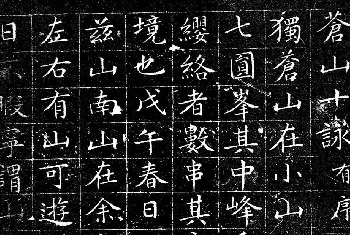 蒼山十詠有序
獨蒼山在小山
七圓峯其中峰
纓絡者數串其
境也戊午春日
茲山南山在余
左右有山可遊
日暇謂